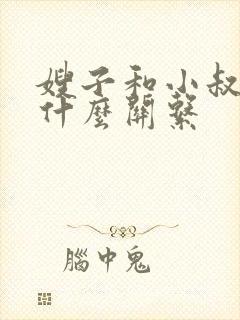 嫂子和小叔
什麼關繫
腦中鬼